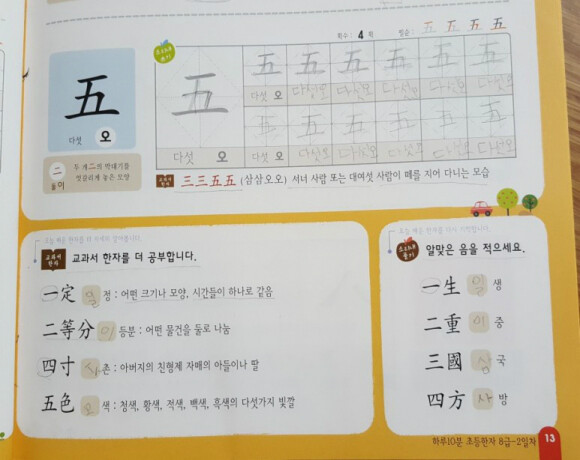 획수: 4 획 필순: 五 五 五 五
쓰고쓰고 쓰기
五 五 五 五 五 五 五 五
다섯 오
다섯 오 다섯 오 다섯오 다섯오 다섯오 다섯오 다섯오
五 五 五 五 五 五
二 둘이
두 개 二의 막대기를
엇갈리게 놓은 모양
다섯 오 다섯 오 다섯오 다섯오 다섯오 다섯오 다섯오
교과서 한자 三三五五 (삼삼오오) 서너 사람 또는 대여섯 사람이 떼를 지어 다니는 모습
교과서 한자 교과서 한자를 더 공부합니다.
一定 일 정 : 어떤 크기나 모양, 시간들이 하나로 같음
二等分 이 등분 : 어떤 물건을 둘로 나눔
四寸 사 촌 : 아버지의 친형제 자매의 아들이나 딸
五色 오 색 : 청색, 황색, 적색, 백색, 흑색의 다섯가지 빛깔
알맞은 음을 적으세요.
一生 일 생
二重 이 중
三國 삼 국
四方 사 방
하루10분 초등한자 8급-2일차 13